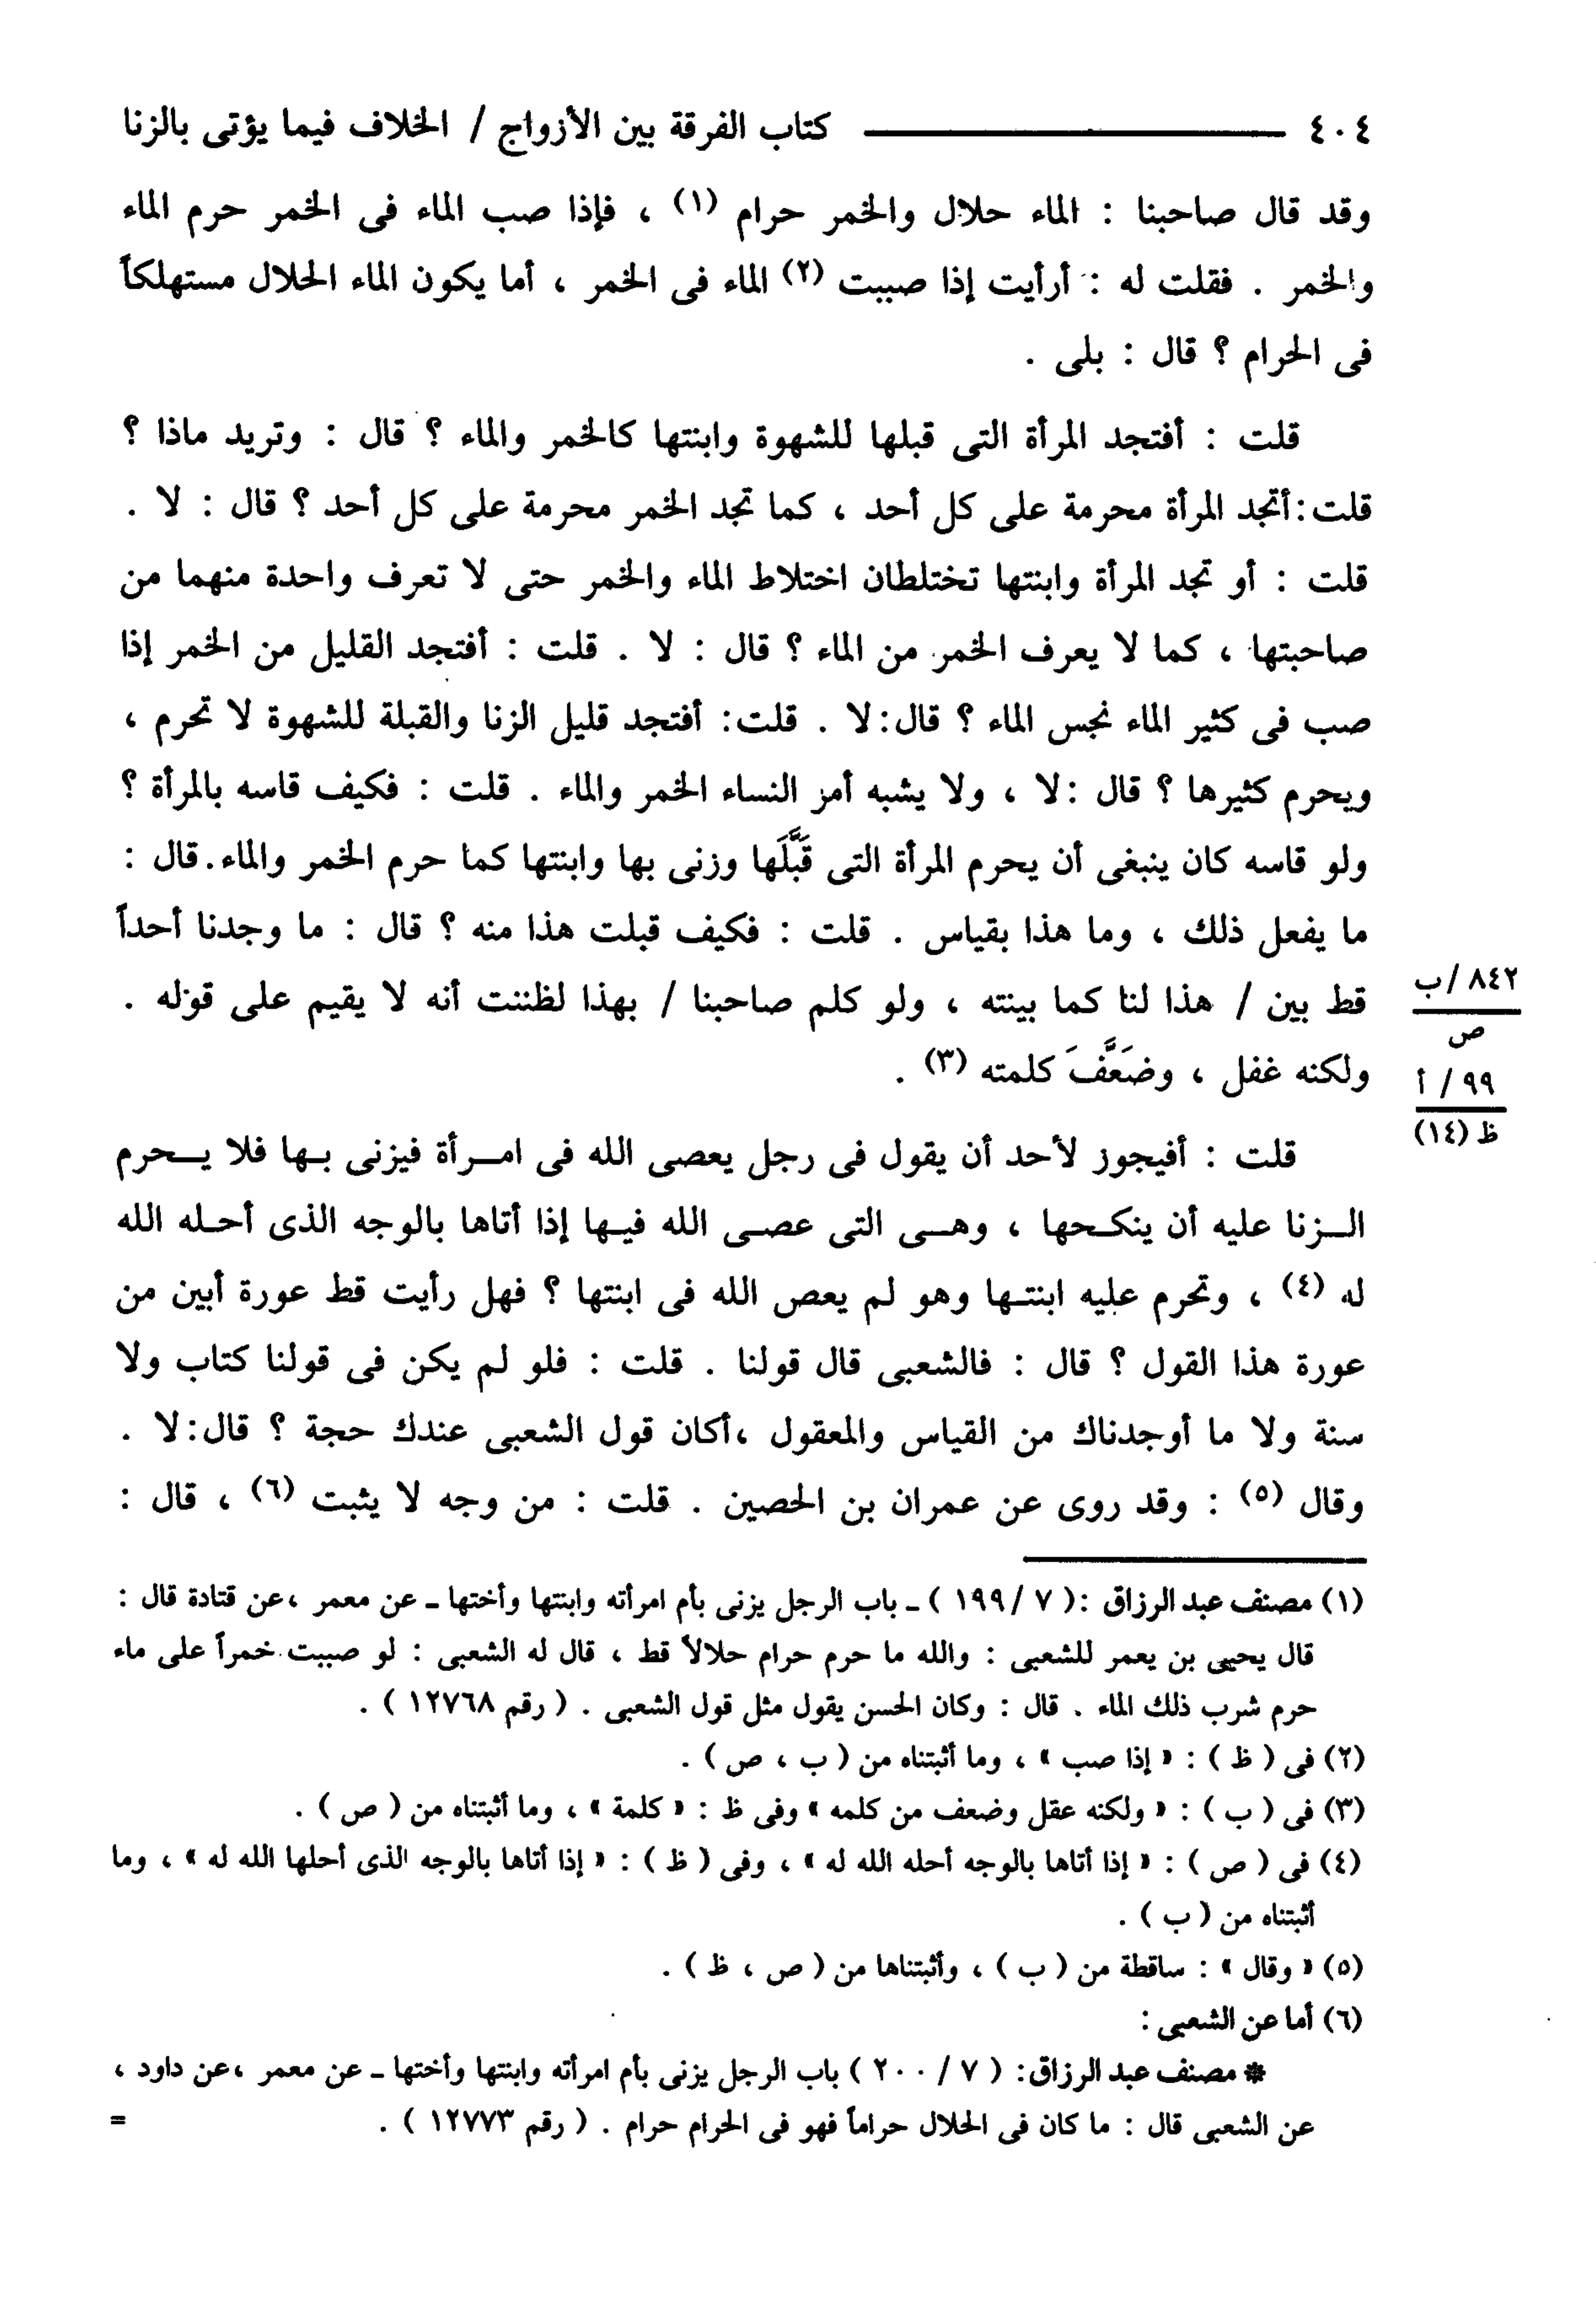 ٤٠٤ ــــــــــــــــ كتاب الفرقة بين الأزواج / الخلاف فيما يؤتى بالزنا
وقد قال صاحبنا : الماء حلال والخمر حرام (١) ، فإذا صب الماء فى الخمر حرم الماء
والخمر . فقلت له : أرأيت إذا صببت (٢) الماء فى الخمر ، أما يكون الماء الحلال مستهلكاً
فى الحرام ؟ قال : بلى .
قلت : أفتجد المرأة التى قبلها للشهوة وابنتها كالخمر والماء ؟ قال : وتريد ماذا ؟
قلت : أتجد المرأة محرمة على كل أحد ، كما تجد الخمر محرمة على كل أحد ؟ قال : لا .
قلت : أو تجد المرأة وابنتها تختلطان اختلاط الماء والخمر حتى لا تعرف واحدة منهما من
صاحبتها ، كما لا يعرف الخمر من الماء ؟ قال : لا . قلت : أفتجد القليل من الخمر إذا
صب فى كثير الماء نجس الماء ؟ قال : لا . قلت : أفتجد قليل الزنا والقبلة للشهوة لا تحرم ،
ويحرم كثيرها ؟ قال : لا ، ولا يشبه أمر النساء الخمر والماء . قلت : فكيف قاسه بالمرأة ؟
ولو قاسه كان ينبغى أن يحرم المرأة التى قَبَّلَها وزنى بها وابنتها كما حرم الخمر والماء . قال :
ما يفعل ذلك ، وما هذا بقياس . قلت : فكيف قبلت هذا منه ؟ قال : ما وجدنا أحداً
قط بين / هذا لنا كما بينته ، ولو كلم صاحبنا / بهذا لظننت أنه لا يقيم على قوله .
ولكنه غفل ، وضَعَّفَ كلمته (٣) .
٨٤٢ / ب
ص
٩٩ / أ
ظ (١٤)
قلت : أفيجوز لأحد أن يقول فى رجل يعصى الله فى امـرأة فيزنى بـها فلا يـحرم
الـزنا عليه أن ينكـحها ، وهـى التى عصـى الله فيـها إذا أتاها بالوجه الذى أحـله الله
له (٤) ، وتحرم عليه ابنتـها وهو لم يعص الله فى ابنتها ؟ فهل رأيت قط عورة أبين من
عورة هذا القول ؟ قال : فالشعبى قال قولنا . قلت : فلو لم يكن فى قولنا كتاب ولا
سنة ولا ما أوجدناك من القياس والمعقول ، أكان قول الشعبى عندك حجة ؟ قال : لا .
وقال (٥) : وقد روى عن عمران بن الحصين . قلت : من وجه لا يثبت (٦) ، قال :
(١) مصنف عبد الرزاق : ( ٧ / ١٩٩ ) ـ باب الرجل يزنى بأم امرأته وابنتها وأختها ـ عن معمر ، عن قتادة قال :
قال يحيى بن يعمر للشعبى : والله ما حرم حرام حلالاً قط ، قال له الشعبى : لو صببت خمراً على ماء
حرم شرب ذلك الماء . قال : وكان الحسن يقول مثل قول الشعبى . ( رقم ١٢٧٦٨ ) .
(٢) فى ( ظ ) : « إذا صب » ، وما أثبتناه من ( ب ، ص ) .
(٣) فى ( ب ) : « ولكنه عقل وضعف من كلمه » وفى ظ : « كلمة » ، وما أثبتناه من ( ص ) .
(٤) فى ( ص ) : « إذا أتاها بالوجه أحله الله له » ، وفى ( ظ ) : « إذا أتاها بالوجه الذى أحلها الله له » ، وما
أثبتناه من ( ب ) .
(٥) « وقال » : ساقطة من ( ب ) ، وأثبتناها من ( ص ، ظ ) .
(٦) أما عن الشعبى :
* مصنف عبد الرزاق : ( ٧ / ٢٠٠ ) باب الرجل يزنى بأم امرأته وابنتها وأختها ـ عن معمر ، عن داود ،
عن الشعبى قال : ما كان فى الحلال حراماً فهو فى الحرام حرام . ( رقم ١٢٧٧٣ ) . =